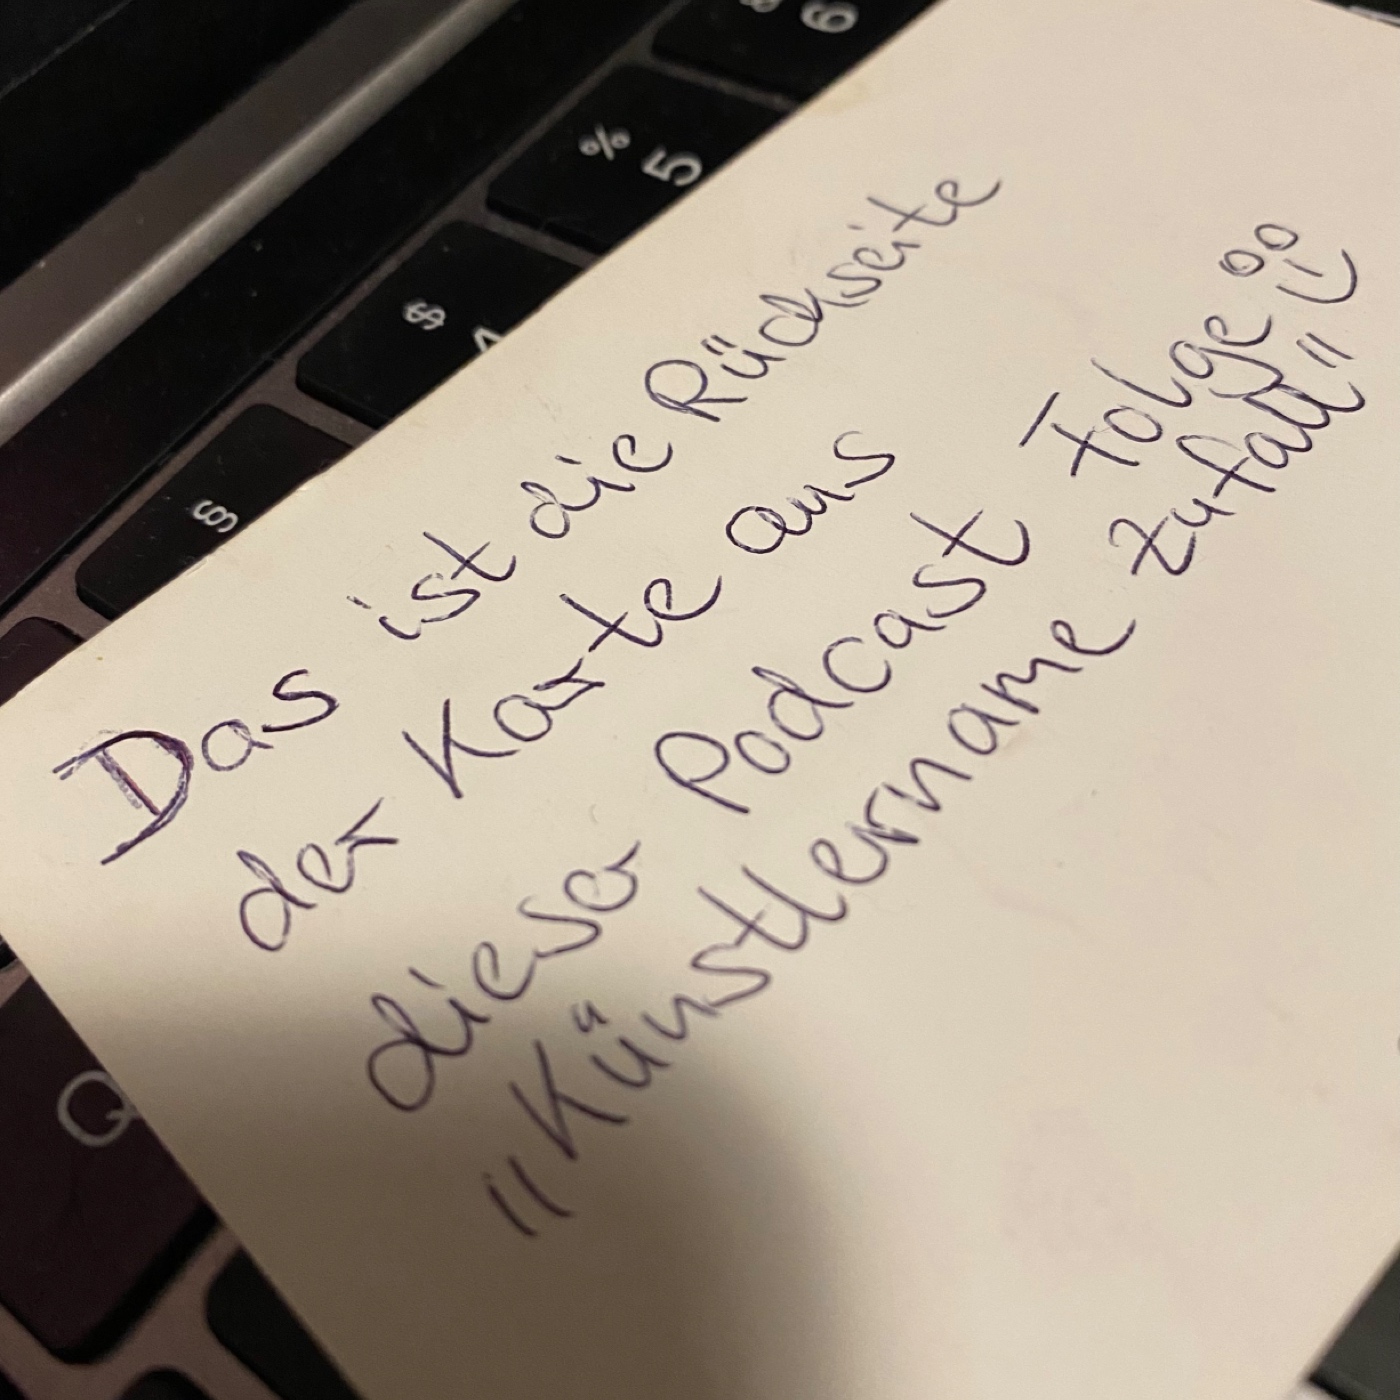 6
%
5
$
§
Q
Das ist die Rückseite
der Karte aus
dieser Podcast Folge
"Künstlername Zufall"